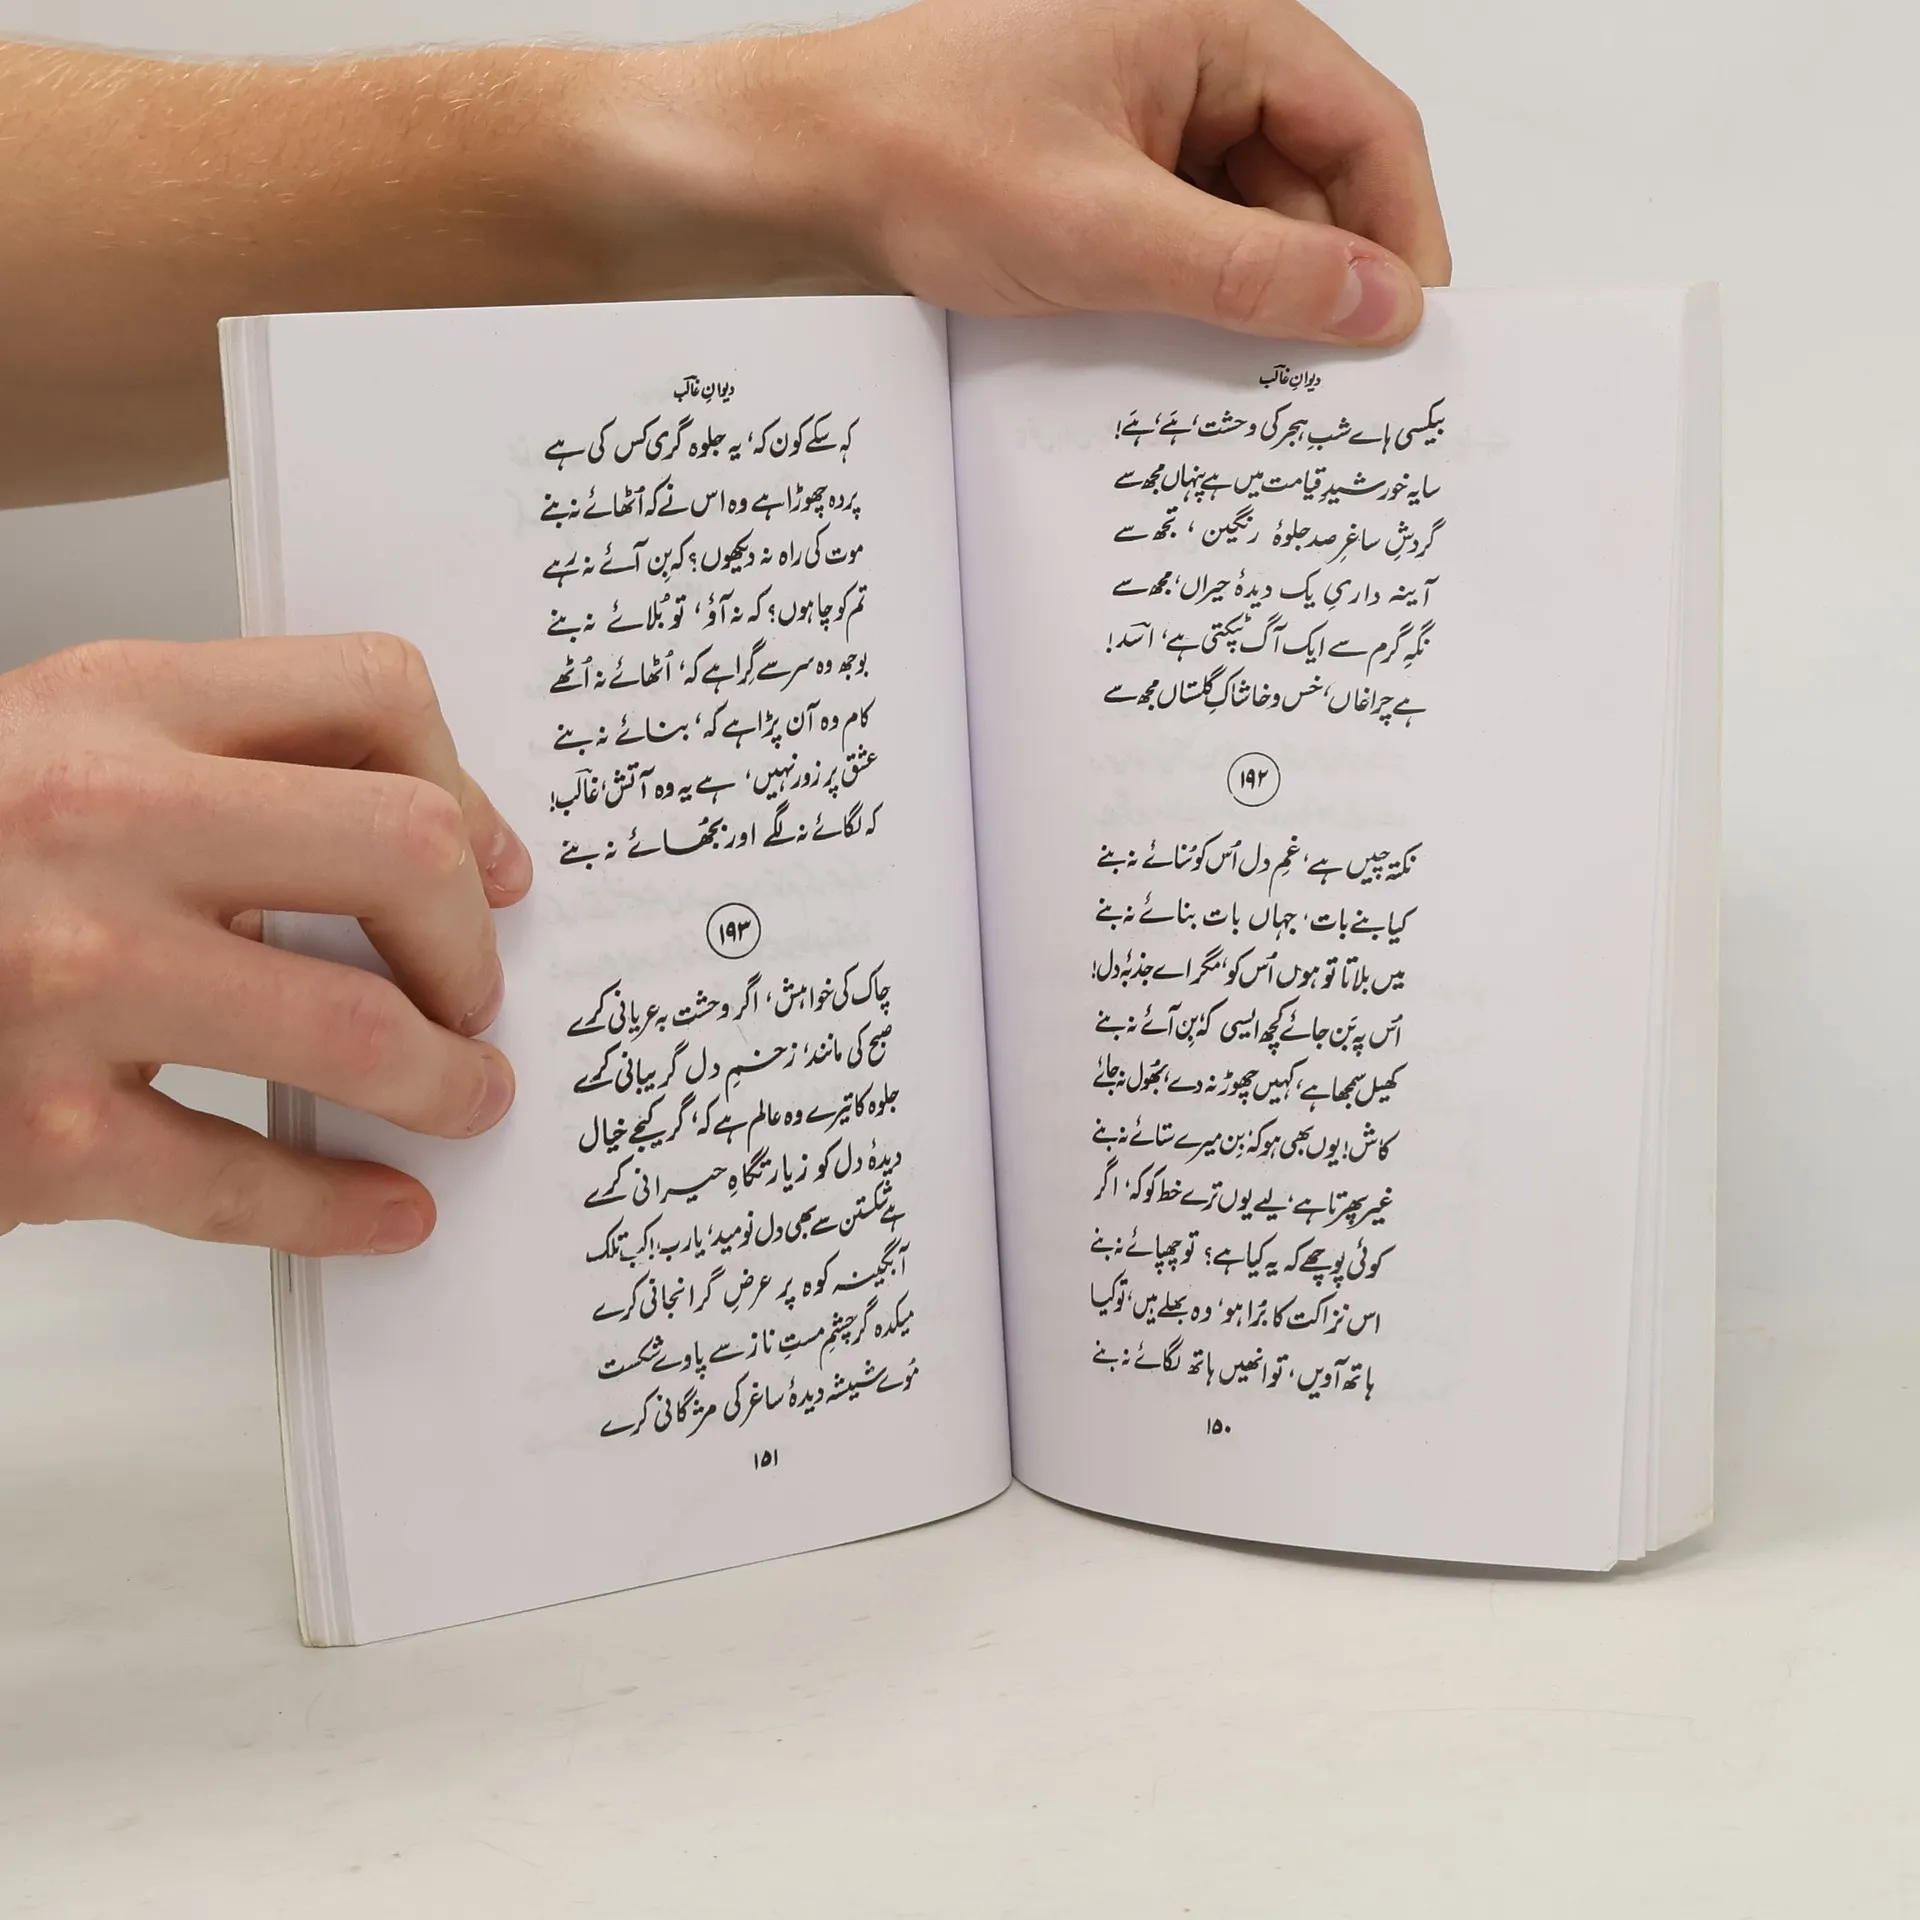 دیوانِ غالب
بیکسی ہاے شبِ ہجر کی وحشت، ہَے، ہَے!
سایہ خورشیدِ قیامت میں ہے پنہاں مجھ سے
گردشِ ساغرِ صد جلوۂ رنگین، تجھ سے
آینہ داریِ یک دیدۂ حیراں، مجھ سے
نگہِ گرم سے ایک آگ ٹپکتی ہے، اسدؔ!
ہے چراغاں، خس و خاشاکِ گلستاں مجھ سے
۱۹۲
نکتہ چیں ہے، غمِ دل اُس کو سُنائے نہ بنے
کیا بنے بات، جہاں بات بنائے نہ بنے
میں بلاتا تو ہوں اُس کو، مگر اے جذبۂ دل!
اُس پہ بَن جائے کُچھ ایسی کہ، بِن آئے نہ بنے
کھیل سمجھا ہے، کہیں چھوڑ نہ دے، بھُول نہ جائے
کاش! یوں بھی ہو کہ، بِن میرے ستائے نہ بنے
غیر پھرتا ہے، لیے یوں ترے خط کو کہ، اگر
کوئی پوچھے کہ یہ کیا ہے؟ تو چھپائے نہ بنے
اس نزاکت کا بُرا ہو، وہ بھلے ہیں، تو کیا
ہاتھ آویں، تو انھیں ہاتھ لگائے نہ بنے
۱۵۰
دیوانِ غالب
کہہ سکے کون کہ، یہ جلوہ گری کس کی ہے
پردہ چھوڑا ہے وہ اس نے کہ اُٹھائے نہ بنے
موت کی راہ نہ دیکھوں؟ کہ بِن آئے نہ رہے
تم کو چاہوں؟ کہ نہ آؤ، تو بُلائے نہ بنے
بوجھ وہ سر سے گِرا ہے کہ، اُٹھائے نہ اُٹھے
کام وہ آن پڑا ہے کہ، بنائے نہ بنے
عشق پر زور نہیں، ہے یہ وہ آتش، غالبؔ!
کہ لگائے نہ لگے اور بجھائے نہ بنے
۱۹۳
چاک کی خواہش، اگر وحشت بہ عریانی کرے
صبح کی مانند، زخمِ دل گریبانی کرے
جلوہ کا تیرے وہ عالم ہے کہ، گر کیجے خیال
دیدۂ دل کو زیارتگاہِ حیرانی کرے
ہے شکستن سے بھی دل نومید، یارب! کب تلک
آبگینہ کوہ پر عرضِ گرانجانی کرے
میکدہ گر چشمِ مستِ ناز سے پاوے شکست
مُوے شیشہ دیدۂ ساغر کی مژگانی کرے
۱۵۱